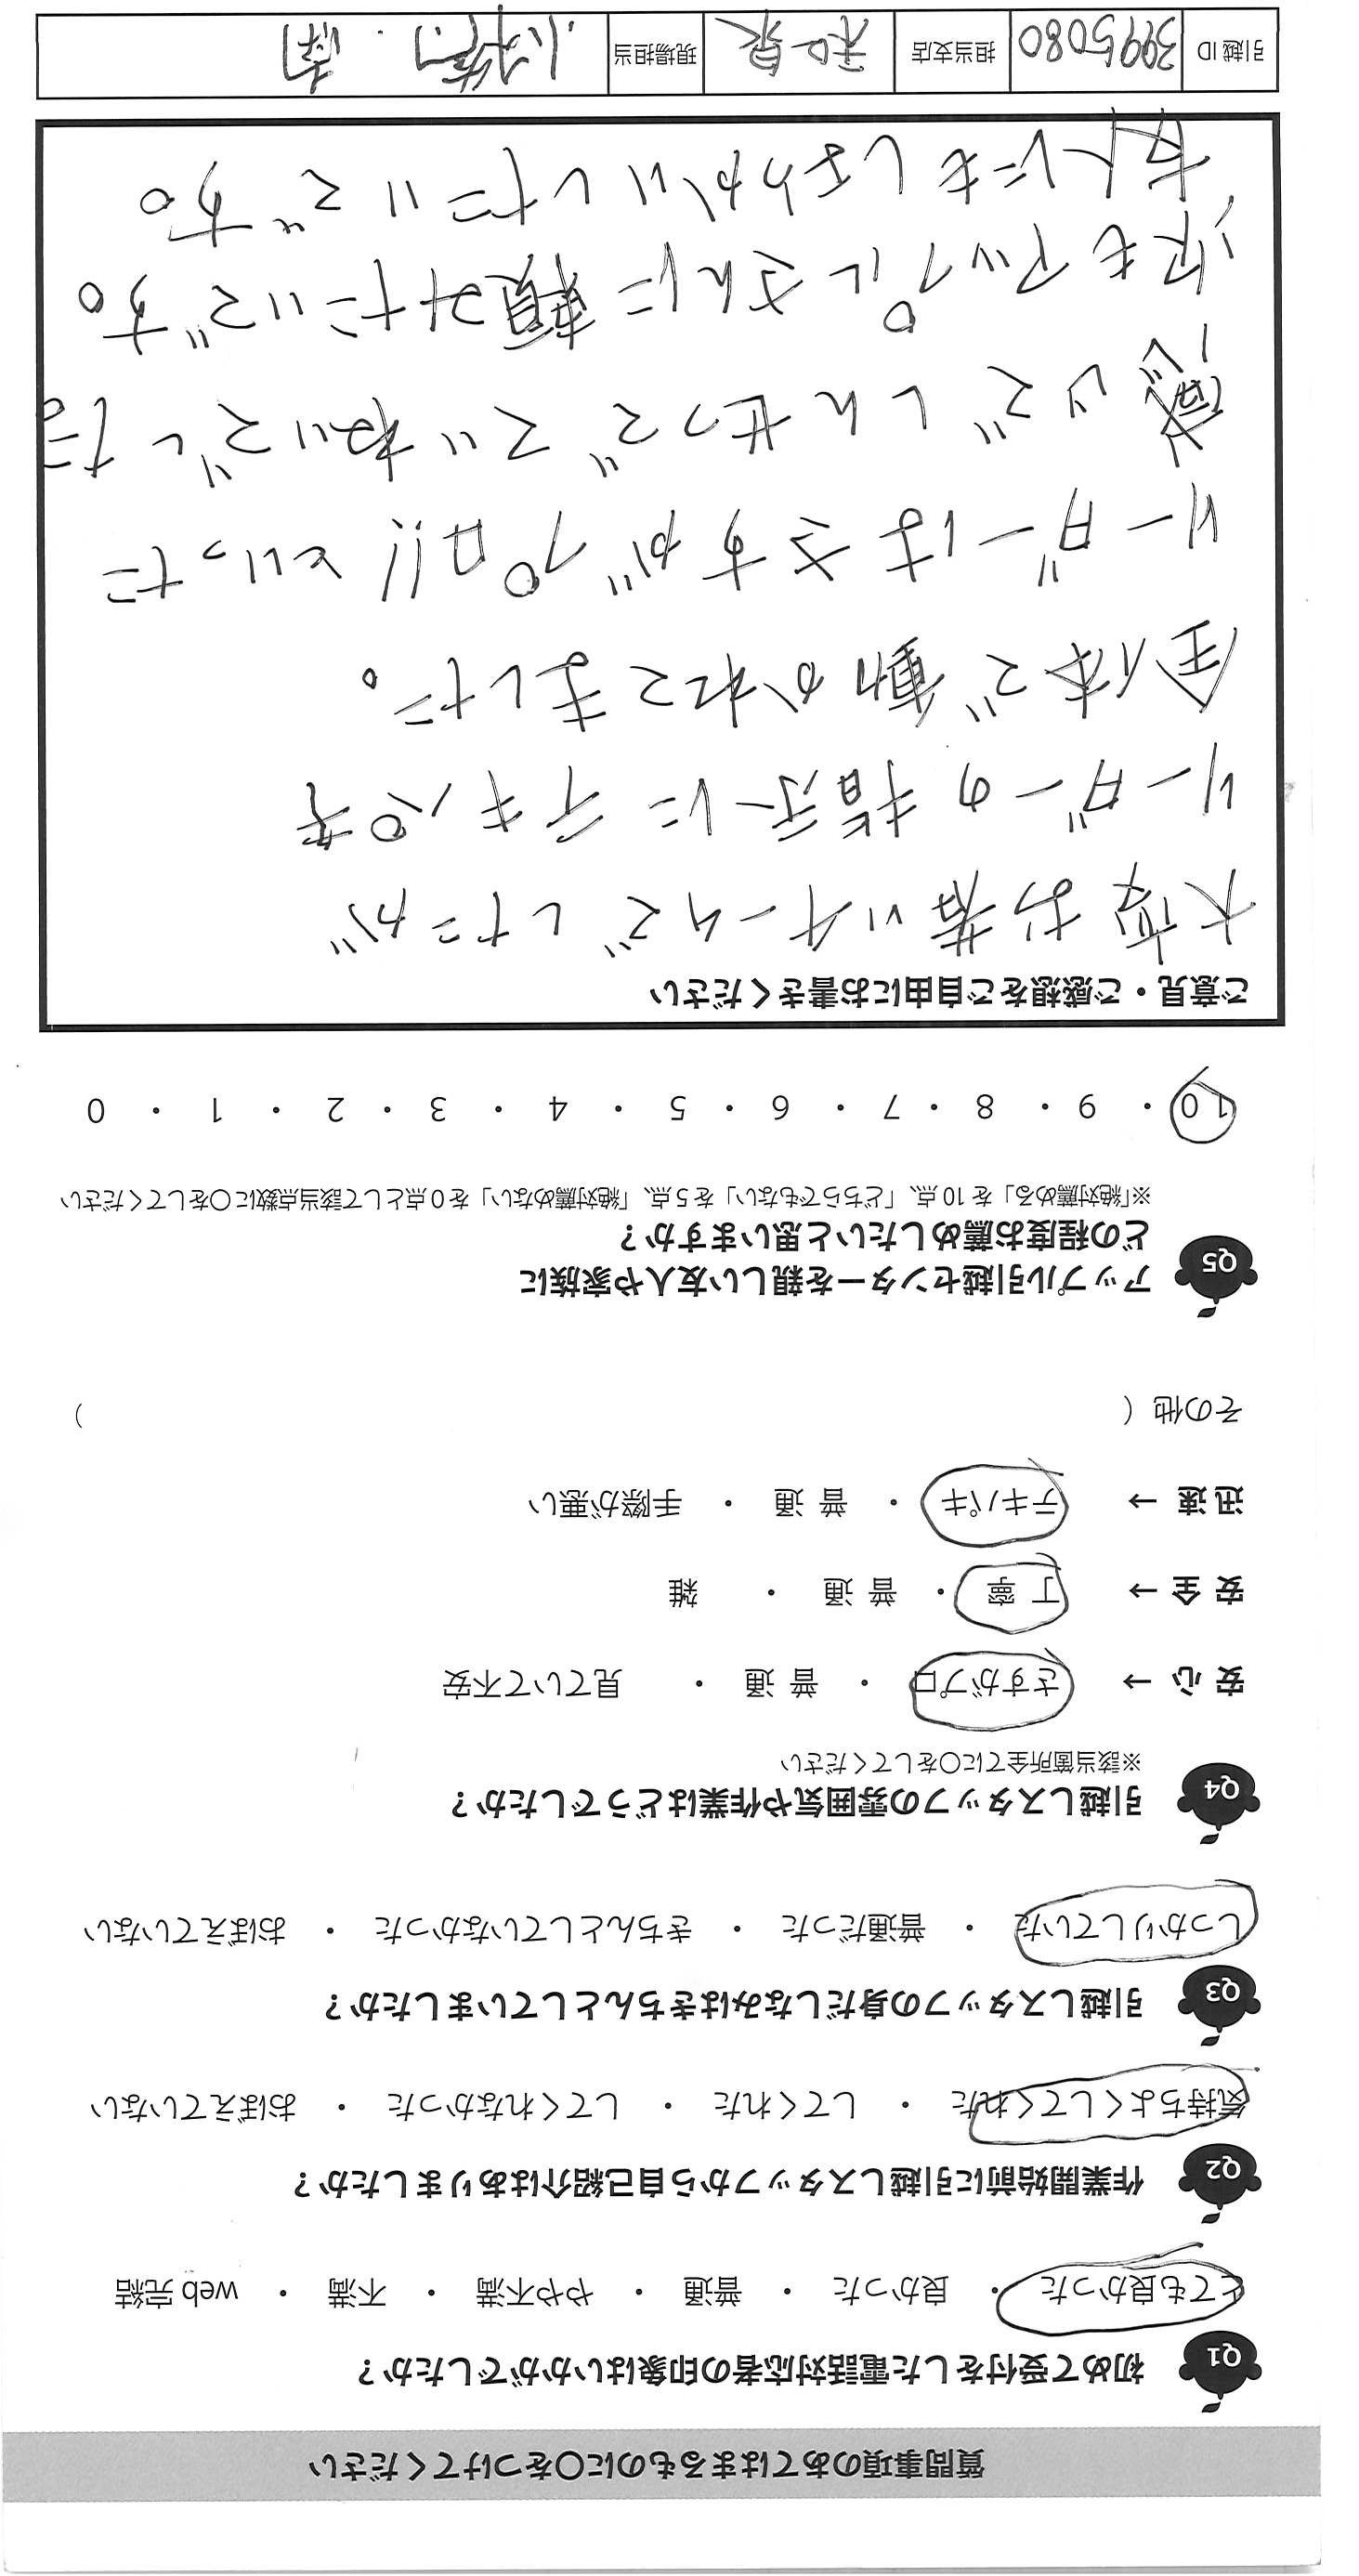 質問事項のあてはまるものに〇をつけてください
Q1 初めて受付をした電話対応者の印象はいかがでしたか？
とても良かった ・ 良かった ・ 普通 ・ やや不満 ・ 不満 ・ web 完結
Q2 作業開始前に引越しスタッフから自己紹介はありましたか？
気持ちよくしてくれた ・ してくれた ・ してくれなかった ・ おぼえていない
Q3 引越しスタッフの身だしなみはきちんとしていましたか？
しっかりしていた ・ 普通だった ・ きちんとしていなかった ・ おぼえていない
Q4 引越しスタッフの雰囲気や作業はどうでしたか？
※該当箇所全てに〇をしてください
安 心 → さすがプロ ・ 普 通 ・ 見ていて不安
安 全 → 丁 寧 ・ 普 通 ・ 雑
迅 速 → テキパキ ・ 普 通 ・ 手際が悪い
その他（ ）
Q5 アップル引越センターを親しい友人や家族に
どの程度お薦めしたいと思いますか？
※「絶対薦める」を 10 点、「どちらでもない」を 5 点、「絶対薦めない」を 0 点として該当点数に〇をしてください
10 ・ 9 ・ 8 ・ 7 ・ 6 ・ 5 ・ 4 ・ 3 ・ 2 ・ 1 ・ 0
ご意見・ご感想をご自由にお書きください
大変お若いチームでしたが
リーダーの指示にテキパキ
全体で動かれてました。
リーダーはさすがプロ!!といった
感じでしんせつでていねいでした。
次もアップルさんに頼みたいです。
友人にもしょうかいしたいです。
引越 ID 3995080 担当支店 和泉 現場担当 小椿 ・ 南